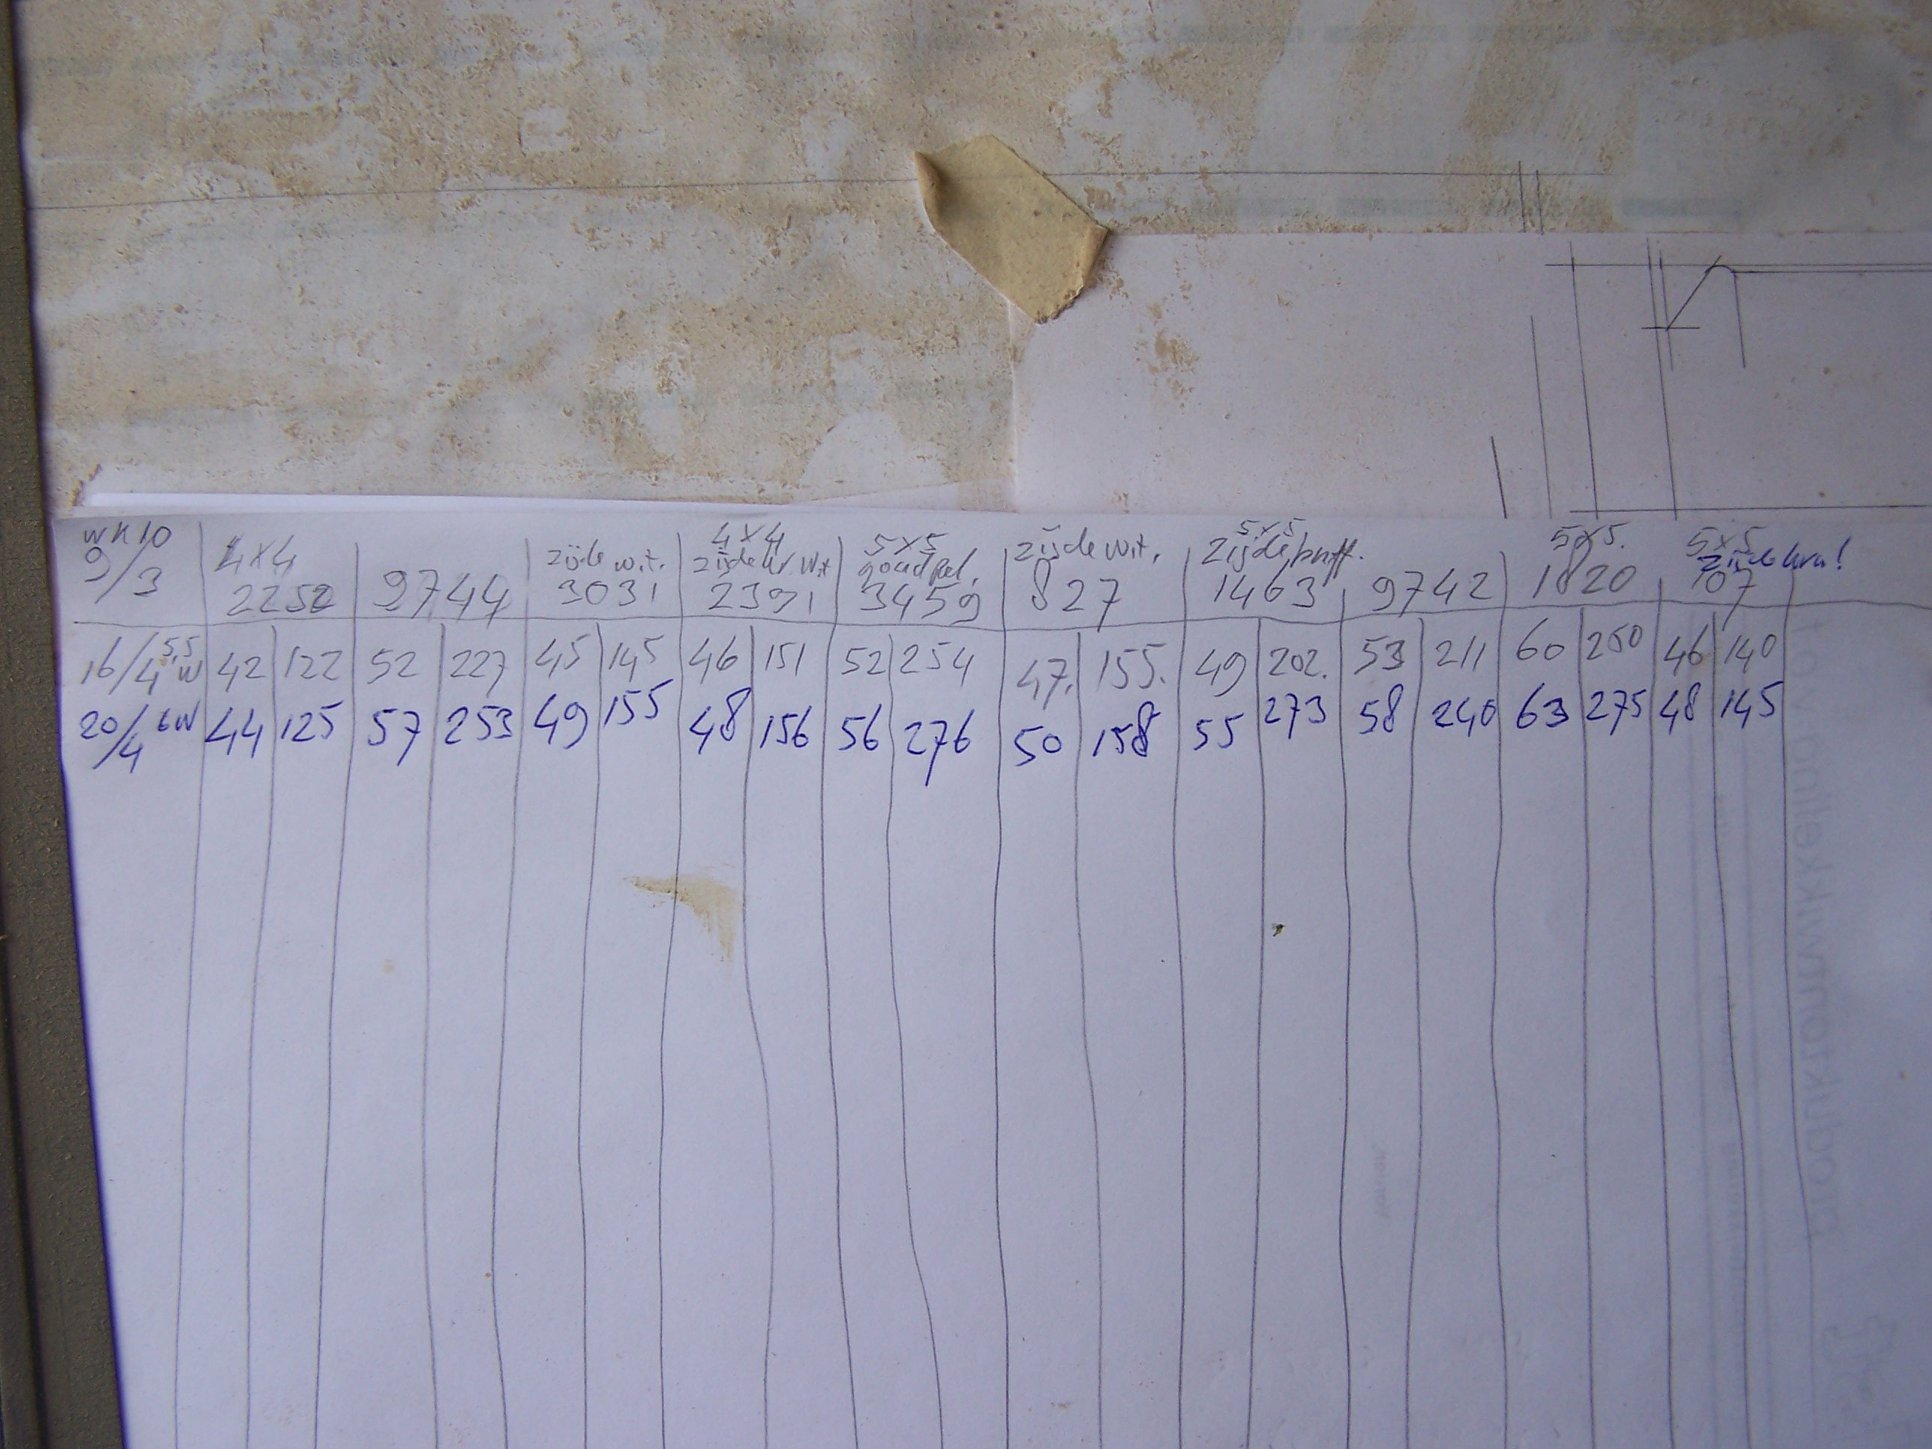 wk 10 4x4 zijde wit. 4x4 5x5 zijde wit. 5x5 5x5. 5x5
9/3 2252 9744 3031 2391 3459 827 1463 9742 1820 107
16/4 5,5 w 42 122 52 227 45 145 46 151 52 254 47. 155. 49 202. 53 211 60 250 46 140
20/4 6w 44 125 57 253 49 155 48 156 56 276 50 158 55 273 58 240 63 275 48 145